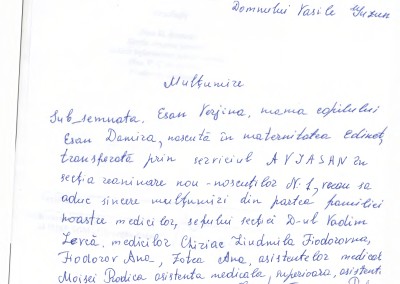 Domnului Vasile Guzun
Mulțumire
Sub_semnata. Esan Verjina, mama copilului
Esan Damira, născută în maternitatea Edineț,
transferată prin serviciul AVIASAN în
secția reanimare nou-noscuților N.1, vreau sa
aduc sincere mulțumiri din partea familiei
noastre medicilor, șefului secției D-ul Vadim
medicilor Chiziac Liudmila Fiodorovna,
Fiodorov Ana, Zotea Ana, asistentelor medical
Moisei Rodica asistenta medicala, superioara, asistent